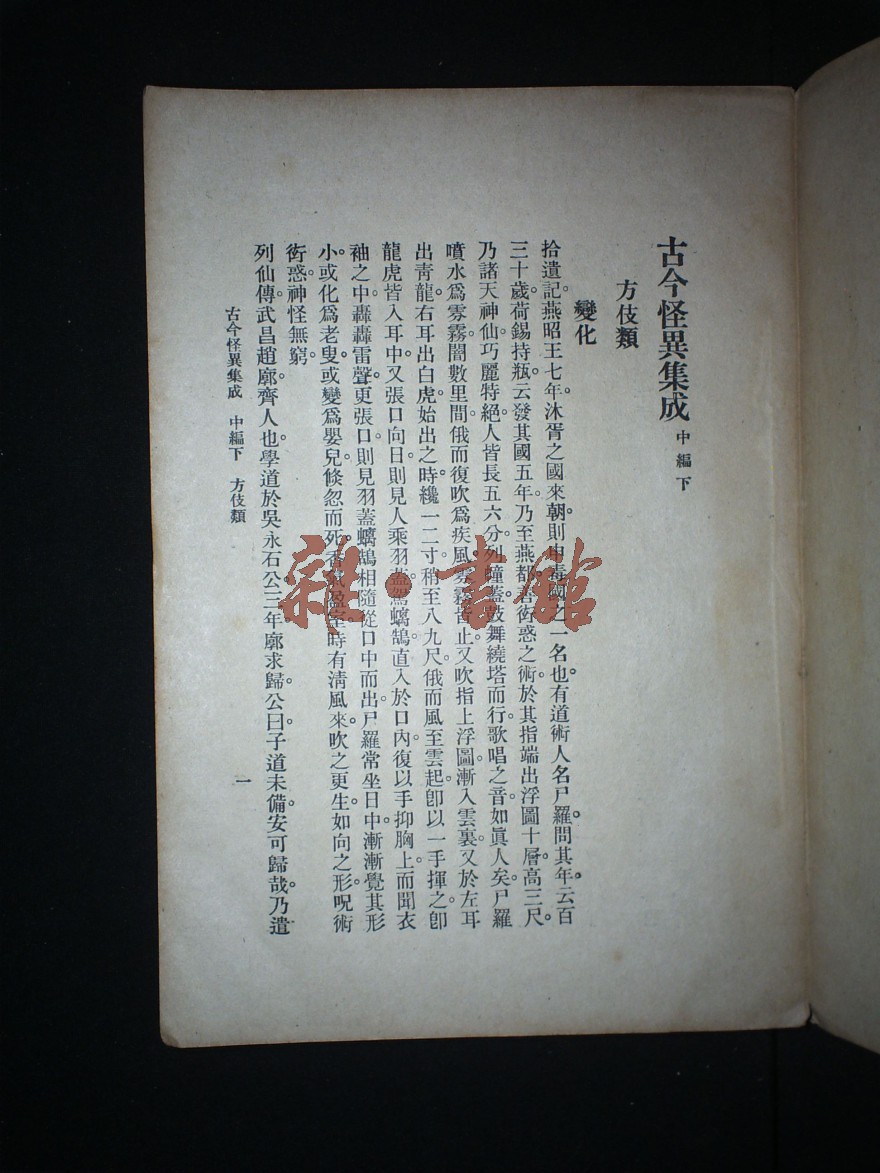 古今怪異集成 中編下
方伎類
變化
拾遺記燕昭王七年。沐胥之國來朝。則申毒國之一名也。有道術人名尸羅。問其年。云百
三十歲。荷錫持瓶。云發其國五年。乃至燕都。衒惑之術。於其指端出浮圖十層。高三尺。
乃諸天神仙。巧麗特絕。人皆長五六分。列幢蓋。鼓舞繞塔而行。歌唱之音。如眞人矣。尸羅
噴水爲雰霧。闇數里間。俄而復吹爲疾風。雰霧皆止。又吹指上浮圖。漸入雲裏。又於左耳
出靑龍。右耳出白虎。始出之時。纔一二寸。稍至八九尺。俄而風至雲起。卽以一手揮之。卽
龍虎皆入耳中。又張口向日。則見人乘羽蓋。駕螭鵠。直入於口內。復以手抑胸上。而聞衣
袖之中。轟轟雷聲。更張口。則見羽蓋螭鵠。相隨從口中而出。尸羅常坐日中。漸漸覺其形
小。或化爲老叟。或變爲嬰兒。倏忽而死。香氣盈室。時有淸風來。吹之更生。如向之形。呪術
衒惑。神怪無窮。
列仙傳武昌趙廓。齊人也。學道於吳永石公。三年。廓求歸。公曰。子道未備。安可歸哉。乃遣
古今怪異集成 中編下 方伎類
一
雜·書館